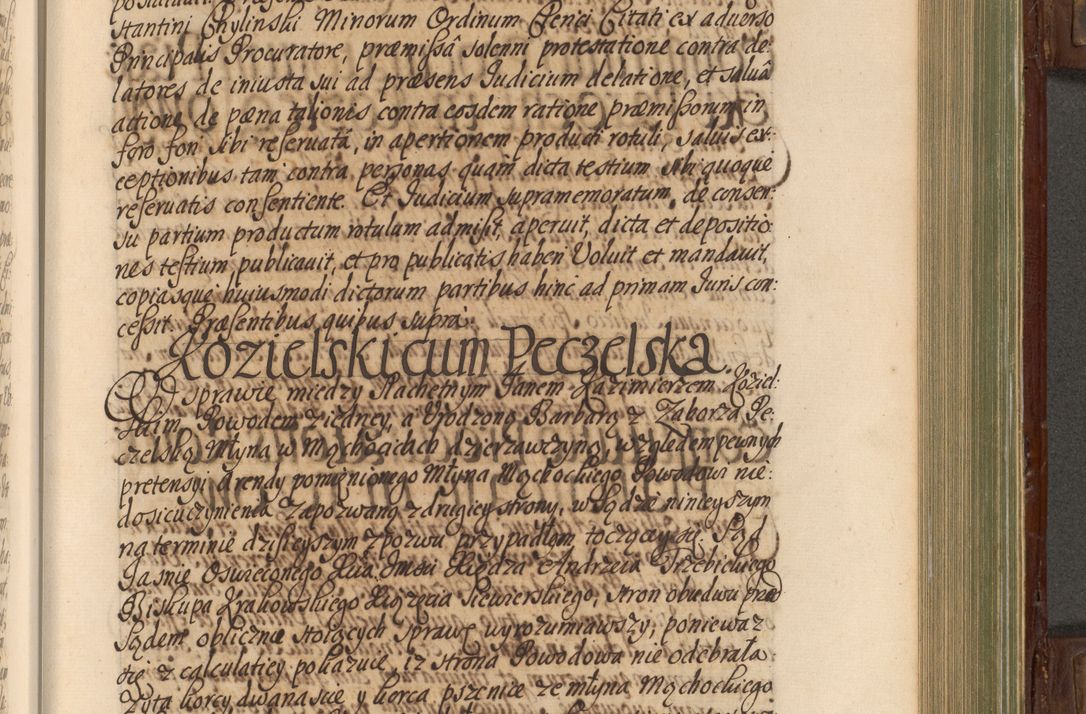 stantini Chylinski Minorum Ordinum Clerici Citati ex aduerso
Principalis Procuratore, præmissâ solenni protestatione contra de:
latores de iniusta sui ad præsens Iudicium delatione, et saluâ
actione de pæna talionis contra eosdem ratione præmissorum in
foro fori sibi reseruatâ, in apertionem producti rotuli, saluis ex:
ceptionibus tam contra personas quam dicta testium sibi quoque
reseruatis consentiente. Et Iudicium supramemoratum de consen:
su partium productum rotulum admisit, aperuit, dicta et depositio:
nes testium publicauit, et pro publicatis haberi Voluit et mandauit,
copiasque huiusmodi dictorum partibus hinc ad primam Iuris con:
cessit. Præsentibus quibus supra.
Kozielski cum Peczelska.
W sprawie miedzy Slachetnym Janem Kazimierzem Koziel:
skim Powodem z iedney, a Vrodzoną Barbarą z Zaborza Pe:
czelską Młyna w Mąchocicach dzierzawczyną, względem pewnych
pretensyi Arendy pomienionego Młyna Mąchockiego Powodowi nie:
dosicuczynienia Zapozwaną z drugiey strony, w Sądzie ninieyszym
na terminie dzisieyszym z pozwu przypadłem toczącey się. Sąd
Jasnie Oswieconego Xcia Jmsci Xiędza Andrzeia Trzebickiego
Biskupa Krakowskiego Xiązęcia Siewierskiego, stron obudwu przed
Sądem oblicznie stoiących sprawę wyrozumiawszy, poniewaz
się z calculatiey pokazuie, iz strona Powodowa nie odebrała
Zyta korcy dwanascie y korca pszenice ze młyna Mąchockiego